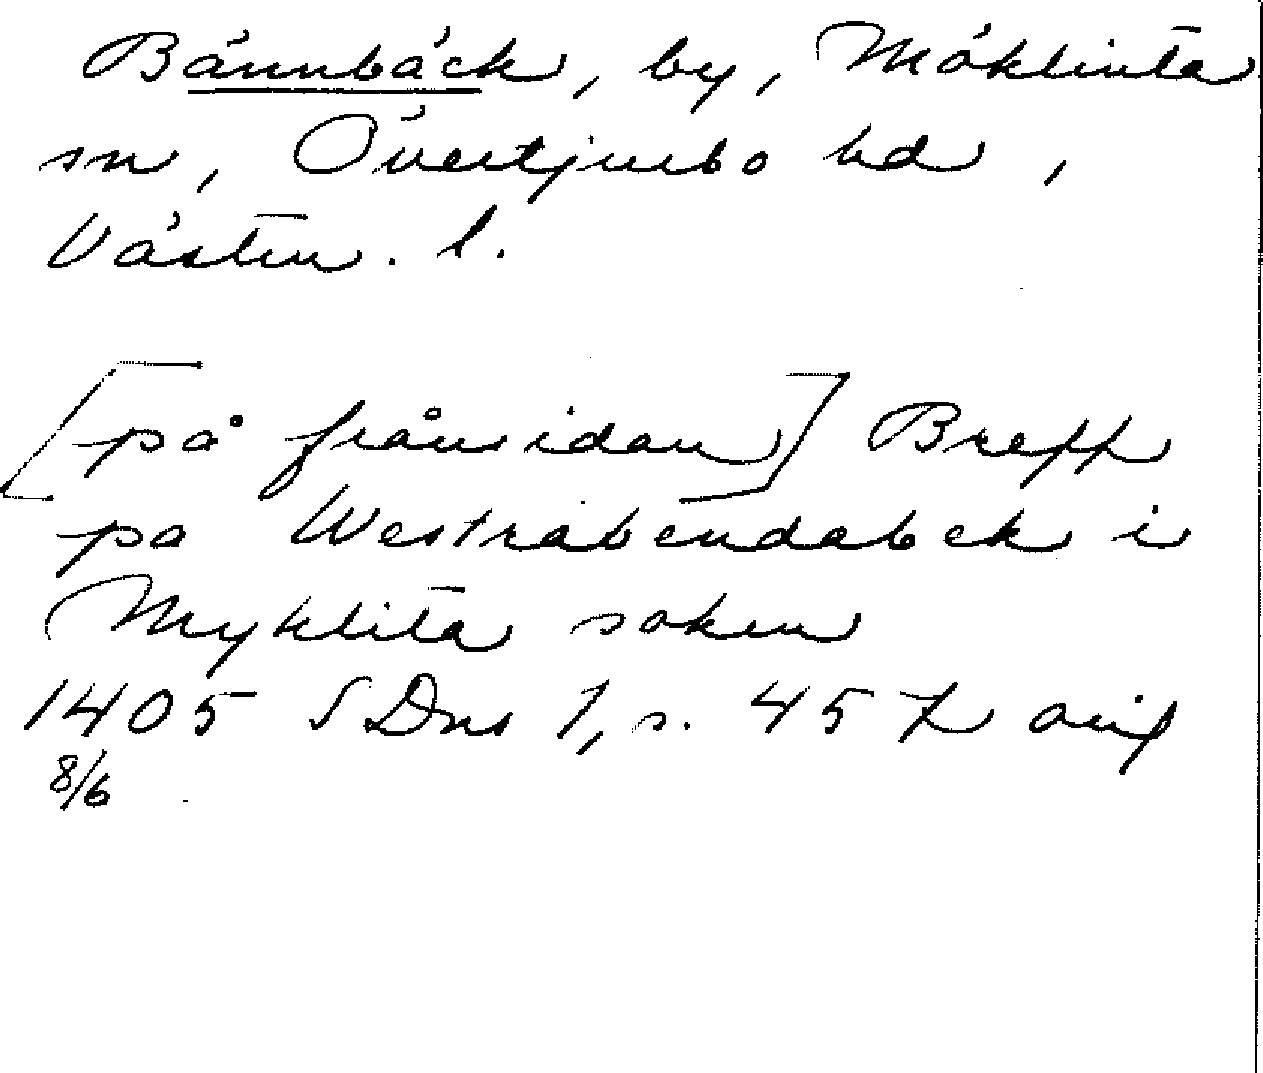 Bännbäck, by, Möklinta
sn, Övertjurbo hd,
Västm. l.
[på frånsidan] Breff
pa Westrabendabek i
Myklita soken
1405 SDns 1, s. 457 orig
8/6